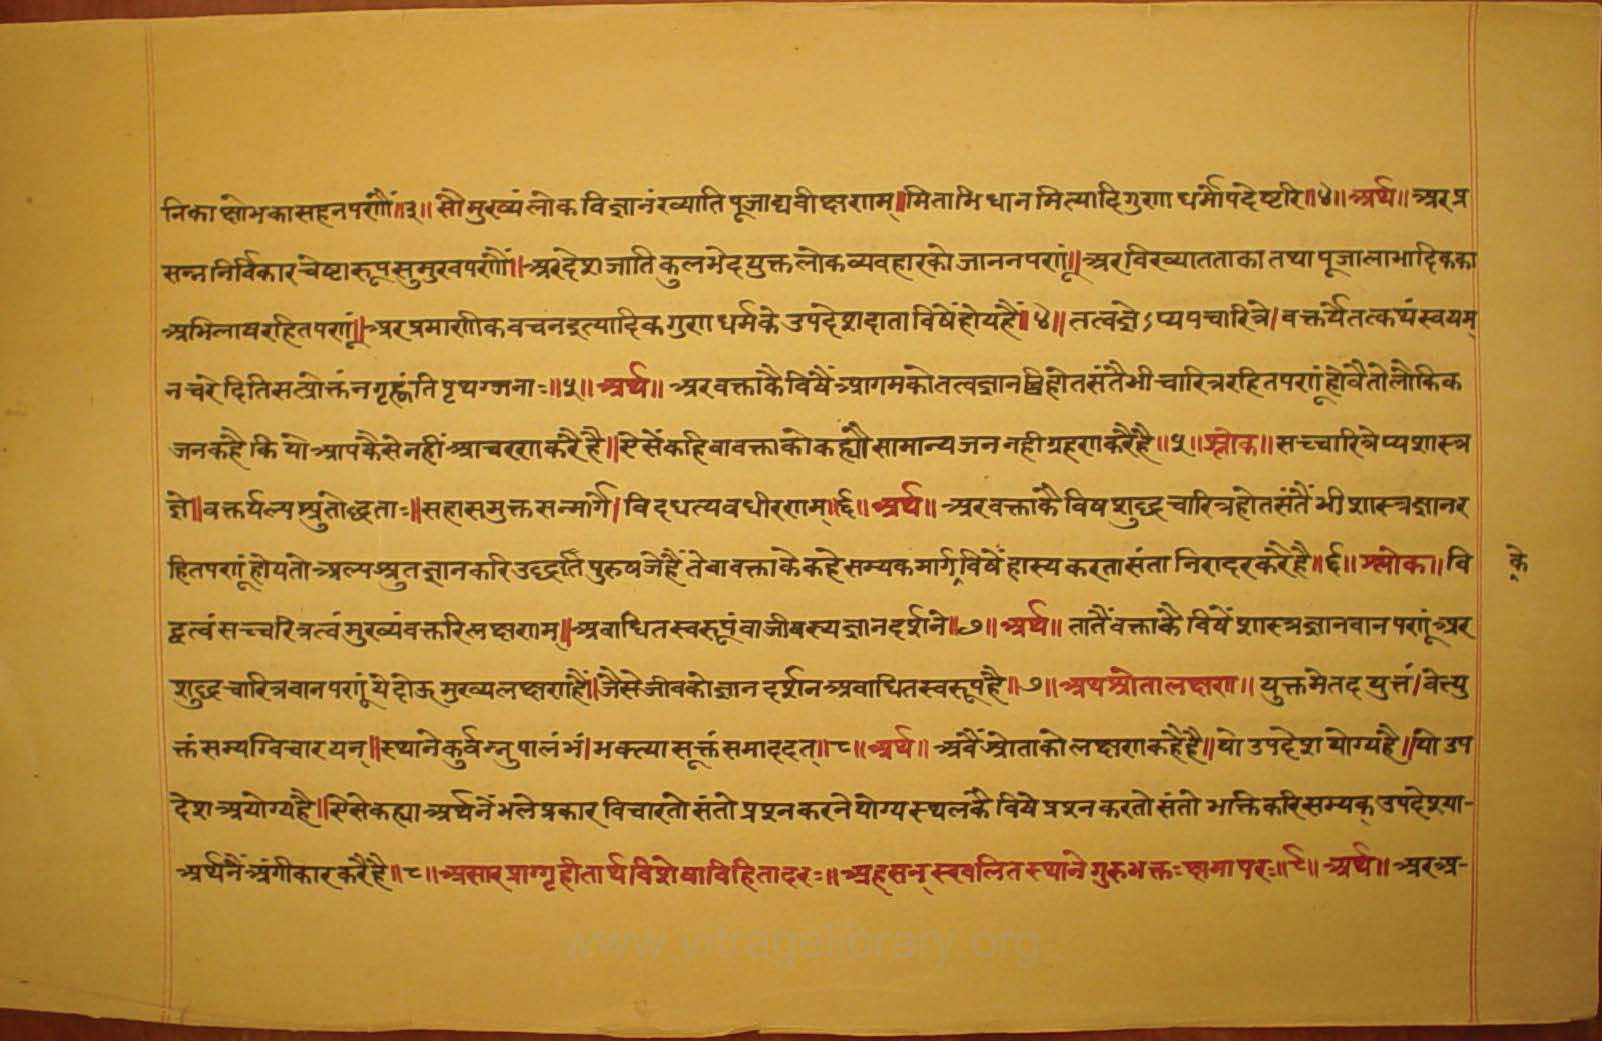 निका क्षोभका सहनपणौं॥३॥ सौमुख्यं लोकविज्ञानं ख्याति पूजाद्यवीक्षणम्॥मिताभिधानमित्यादिगुणा धर्मोपदेष्टरि॥४॥अर्थ॥ अर प्र
सन्न निर्विकार चेष्टारूप सुमुखपणौं॥अर देश जाति कुल भेद युक्त लोक व्यवहारको जाननपणूं॥अर विख्यातताका तथा पूजालाभादिकका
अभिलाष रहितपणूं॥अर प्रमाणीक वचन इत्यादिक गुण धर्मके उपदेशदाता विषें होय हैं॥४॥ तत्वज्ञेऽप्यपचारित्रे।वक्तर्येतत्कथं स्वयम्
न चरेदिति सत्प्रोक्तं न गृह्णंति पृथग्जनाः॥५॥अर्थ॥ अर वक्ताकै विषैं आगमको तत्वज्ञान होत संतै भी चारित्ररहितपणूं होवै तो लौकिक
जन कहै कि यो आप कैसे नहीं आचरण करै है॥ऐसें कहि वा वक्ताको कह्यौ सामान्य जन नही ग्रहण करै है॥५॥श्लोक॥सच्चारित्रेप्यशास्त्र
ज्ञे॥वक्तर्यल्पश्रुतोद्धताः॥सहासमुक्तसन्मार्गे।विदधत्यवधीरणाम्॥६॥अर्थ॥ अर वक्ताकै विष शुद्ध चारित्र होत संतैं भी शास्त्रज्ञान र
हितपणूं होय तो अल्पश्रुत ज्ञान करि उद्धति पुरुष जे हैं ते वा वक्ताके कहे सम्यक मार्ग विषें हास्य करता संता निरादर करै है॥६॥श्लोक॥वि
के
द्वत्वं सच्चरित्रत्वं मुख्यं वक्तरि लक्षणम्॥अबाधितस्वरूपं वा जीवस्य ज्ञानदर्शने॥७॥अर्थ॥ तातैं वक्ताकै विषें शास्त्रज्ञानवानपणूं अर
शुद्ध चारित्रवानपणूं ये दोऊ मुख्य लक्षण हैं॥जैसे जीवको ज्ञान दर्शन अबाधित स्वरूप है॥७॥अथ श्रोता लक्षण॥ युक्तमेतदयुक्तं।वेत्यु
क्तं सम्यग्विचारयन्॥स्थाने कुर्वन्नुपालंभं।भक्त्या सूक्तं समाददत्॥८॥अर्थ॥ अबैं श्रोताको लक्षण कहै है॥यो उपदेश योग्य है॥यो उप
देश अयोग्य है॥ऐसे कह्या अर्थनें भले प्रकार विचारतो संतो प्रश्न करने योग्य स्थलकै विषे प्रश्न करतो संतो भक्ति करि सम्यक् उपदेश्या-
अर्थनैं अंगीकार करै है॥८॥असारप्राग्गृहीतार्थविशेषाविहितादरः॥अहसन् स्खलितस्थाने गुरुभक्तः क्षमापरः॥९॥अर्थ॥ अर अ-
www.vitragelibrary.org